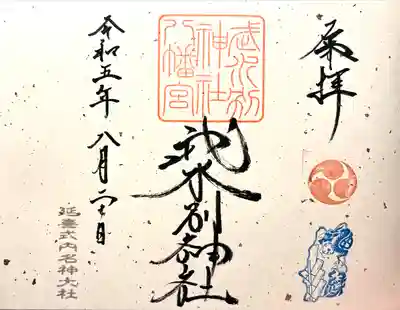 奉拝
武水別
神社
八幡宮
武水別神社
令和五年八月二十日
延喜式内名神大社